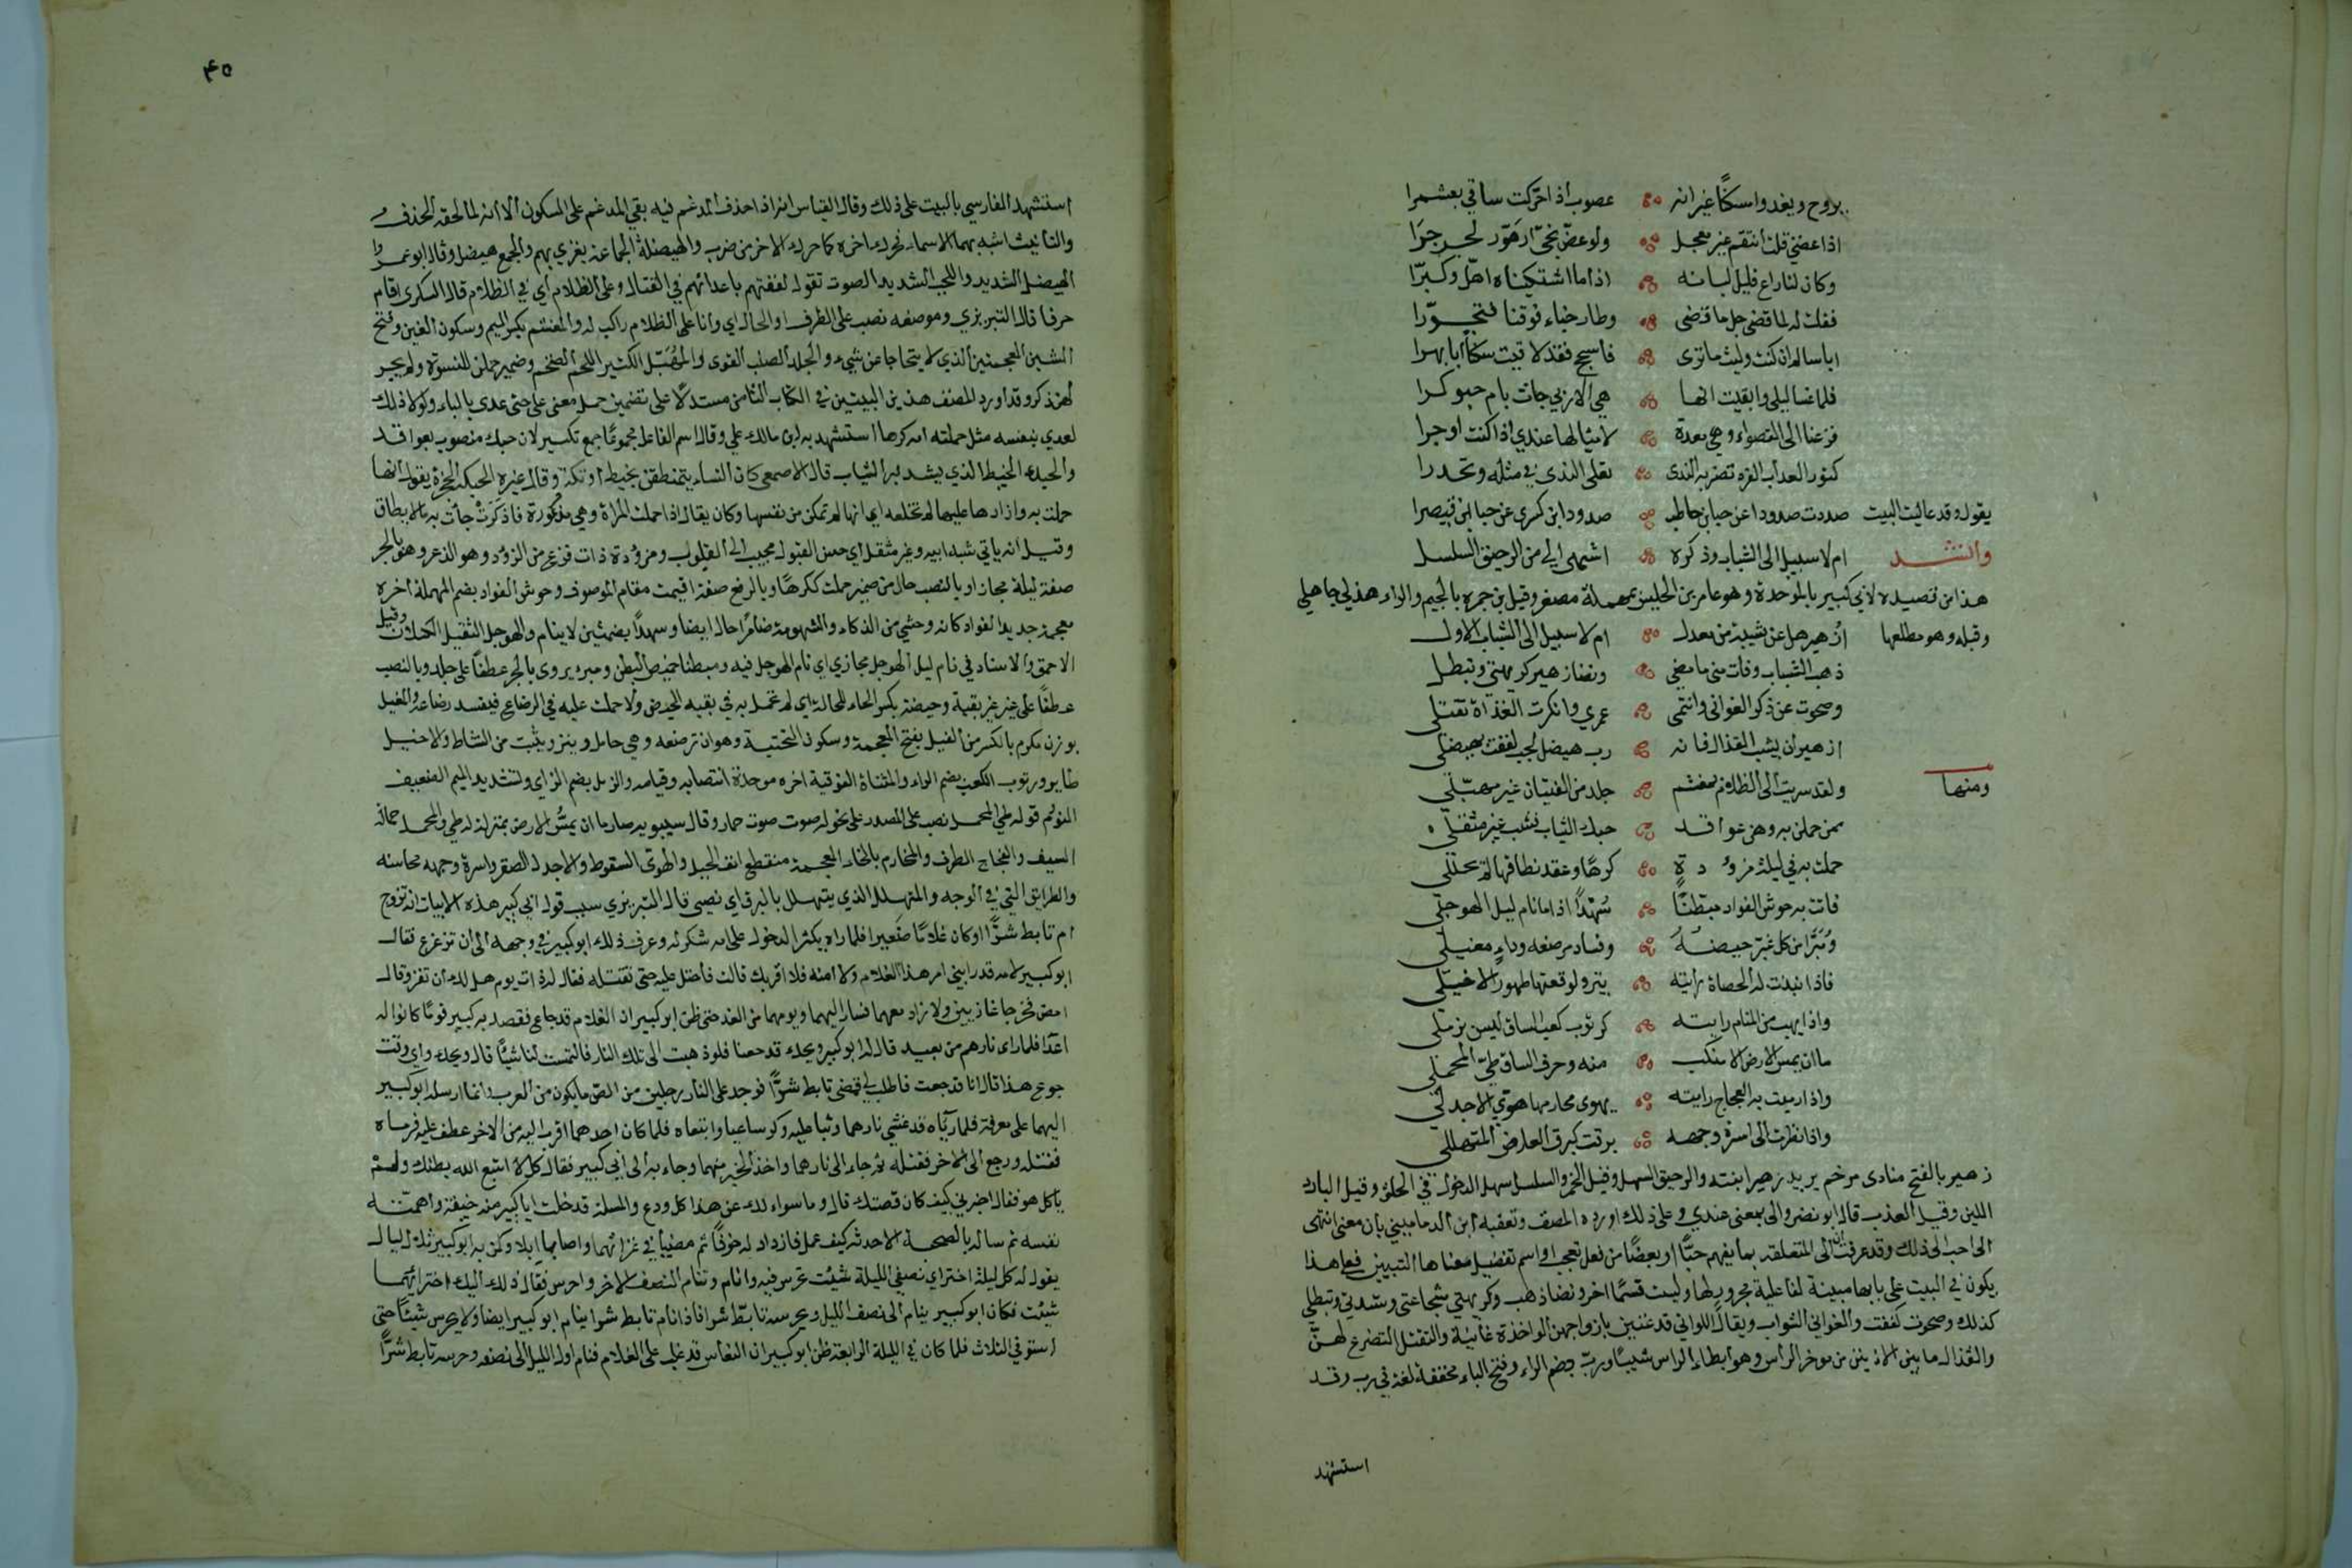 يروح ويغدوا سكنا غيرانه عصوب اذا حركت ساقي بعثمرا
اذا عضني قلت انتقم غير معجل ولو عض
وكان لنا راع قليل لبانه اذا ما اشتكيناه اهل وكبرا
فقلت له لما قضى جل ما قضى وطار خباء فوقنا فتجورا
ايا سالم ان كنت وليت ما ترى فاسجح فقد لاقيت سكنا بابهرا
فلما غسا ليلي وايقنت انها هي الاربى جاءت بام حبوكرا
فزعنا الى القصواء وهي معدة لامثالها عندي اذا كنت اوجرا
كثور العداب الفرد تضربه الندى تعلى الندى في مثله وتحدرا
يقول وقد عاليت البيت صددت صدودا عن حبا بن حاطب صدود ابن كسرى عن حبا ابن قيصرا
وانشد ام لا سبيل الى الشباب وذكره اشهى الي من الرحيق السلسل
هذا من قصيدة لابي كبير بالموحدة وهو عامر بن الحليس بمهملة مصغر وقيل بن جمرة بالجيم والراء هذلي جاهلي
وقبله وهو مطلعها ازهير هل عن شيبة من معدل ام لا سبيل الى الشباب الاول
ذهب الشباب وفات مني ما مضى ونضا زهير كريهتي وتبطل
وصحوت عن ذكر الغواني وانتهى عمري وانكرت الغداة تقتلي
ازهير ان يشب القذال فانه رب هيضل لجب لففت بهيضلي
ومنها ولقد سريت الى الظلام بمغشم جلد من الفتيان غير مهبلي
ممن حملن به وهن عواقد حبك الثياب فشب غير مثقلي
حملت به في ليلة مزؤدة كرها وعقد نطاقها لم تحللي
فاتت به حوش الفواد مبطنا سهدا اذا ما نام ليل الهوجلي
ومبرا من كل غبر حيضة وفساد مرضعه وداء مغيلي
فاذا نبذت له الحصاة رايته ينزو لوقعتها طمور الاخيلي
واذا يهب من المنام رايته كرتوب كعب الساق ليس بزملي
ما ان يمس الارض الا منكب منه وحرف الساق طي المحملي
واذا رميت به الفجاج رايته يهوى مخارمها هوي الاجدلي
واذا نظرت الى اسرة وجهه برقت كبرق العارض المتهللي
زهير بالفتح منادى مرخم يريد زهيرا بنته والرحيق السهل وقيل الخمر والسلسل سهل الدخول في الحلق وقيل البارد
اللين وقيل العذب قال ابو نضر والى بمعنى عندي وعلى ذلك اورده المصنف وتعقبه ابن الدماميني بان معنى اشهى
الي احب الى ذلك وقد عرفت ان الى المتعلقة بما يفهم حبا او بغضا من فعل تعجب او اسم تفضيل معناها التبيين فعلى هذا
يكون في البيت على بابها مبينة لفاعلية مجرورها وليست قسما اخر ونضا ذهب وكريهتي شجاعتي وشدتي وتبطلي
كذلك وصحوت كففت والغواني الشواب ويقال اللواتي قد غنين بازواجهن الواحدة غانية والتقتل التضرع لهن
والقذال ما بين الاذنين من موخر الراس وهو ابطاء الراس شيبا ورب بضم الراء وفتح الباء مخففة لغة في رب وقد
استشهد
٤٥
استشهد الفارسي بالبيت على ذلك وقال القياس انه اذا حذف المدغم فيه بقي المدغم على السكون الا انه لما لحقه الحذف
والتانيث اشبه بهما الاسماء فحرك اخره كما حرك الاخر من ضرب والهيضلة الجماعة يغزي بهم والجمع هيضل وقال ابو عمرو
الهيضل الشديد واللجب الشديد الصوت تقول لففتهم باعدائهم في القتال وعلى الظلام اي في الظلام قال السكرى اقام
حرفا قال التبريزي وموضعه نصب على الظرف او الحال اي وانا على الظلام راكب له والمغشم بكسر الميم وسكون الغين وفتح
الشين المعجمتين الذي لا يتحاجا عن شيء والجلد الصلب القوى والمهبل الكثير اللحم الضخم وضمير حملن للنسوة ولم يجر
لهن ذكر وقد اورد المصنف هذين البيتين في الكتاب الثامن مستدلا على تضمين حمل معنى علق حتى عدى بالباء ولولا ذلك
لعدي بنفسه مثل حملته امه كرها استشهد به ابن مالك على وقال اسم الفاعل مجموعا جمع تكسير لان حبك منصوب بعواقد
والحبك الخيط الذي يشد به الثياب قال الاصمعي كان النساء يتمنطقن بخيط او تكة وقال غيره الحبكة الحجزة يقول انها
حملت به وازارها عليها لم تخلعه اي انها لم تمكن من نفسها وكان يقال اذا حملت المراة وهي مذعورة فاذكرت جات به لا يطاق
وقيل انه ياتي شبه ابيه وغير مثقل اي حسن القبول محبب الى القلوب ومزؤدة ذات فزع من الزؤد وهو الذعر وهو بالجر
صفة ليلة مجازا وبالنصب حال من ضمير حملت ككرها وبالرفع صفة اقيمت مقام الموصوف وحوش الفواد بضم المهملة اخره
معجمة حديد الفواد كانه وحشي من الذكاء والشهومة ضامرا حال ايضا وسهدا بضمتين لا ينام والهوجل الثقيل الكسلان وقيل
الاحمق والاسناد في نام ليل الهوجل مجازي اي نام الهوجل فيه ومبطنا خميص البطن ومبرو يروى بالجر عطفا على جلد وبالنصب
عطفا على غير غبر بقية وحيضة بكسر الحاء للحالة اي لم تحمل به في بقيه الحيض ولا حملت عليه في الرضاع فيفسد رضاعه والغيل
بوزن مكرم بالكسر من الغيل بفتح المعجمة وسكون التحتية وهو ان ترضعه وهي حامل وينزو يثبت من النشاط والاخيل
طاير ورتوب الكعب بضم الراء والمثناة الفوقية اخره موحدة انتصابه وقيامه والزمل بضم الزاي وتشديد الميم الضعيف
النوم قوله طي المحمل نصب على المصدر على نحو له صوت صوت حمار وقال سيبويه صار ما ان يمس الارض بمنزلة له طي والمحمل حمالة
السيف والفجاج الطرف والمخارم بالخاء المعجمة منقطع انف الجبل والهوى السقوط والاجدل الصقر واسرة وجهه محاسنه
والطرايق التي في الوجه والمتهلل الذي يتهلل بالبرق اي يضي قال التبريزي سبب قول ابي كبير هذه الابيات انه تزوج
ام تابط شرا وكان غلاما صغيرا فلما راه يكثر الدخول على امه شكر له وعرف ذلك ابو كبير في وجهه الى ان تزعزع فقال
ابو كبير لامه قد رابني امر هذا الغلام ولا امنه فلا اقربك قالت فاحتل عليه حتى تقتله فقال له ذات يوم هل لك ان تغزو قال
امض فخرجا غازيين ولا زاد معهما فسار اليهما ويومهما من الغد حتى ظن ابو كبير ان الغلام قد جاع فقصد به ابو كبير قوما كانوا له
اعدا فلما راى نارهم من بعيد قال له ابو كبير ويحك قد جعنا فلو ذهبت الى تلك النار فالتمست لنا شيئا قال ويحك واي وقت
جوع هذا قال انا قد جعت فاطلب لي فمضى تابط شرا فوجد على النار رجلين من الص ما يكون من العرب وانما ارسله ابو كبير
اليهما على معرفة فلما راياه قد غشي نارهما وثبا عليه وكر ساعيا واتبعاه فلما كان احدهما اقرب اليه من الاخر عطف عليه فرماه
فقتله ورجع الى الاخر فقتله ثم جاء الى نارهما واخذ الخبز منهما وجاء به الى ابي كبير فقال كل لا اشبع الله بطنك ولم
ياكل هو فقال اخبرني كيف كان قصتك قال وما سواء لك عن هذا كل ودع والمسلة قد خلت ابا كبير منه خيفة واهمته
نفسه ثم ساله بالصحبة الا حدثه كيف عمل فازداد له خوفا ثم مضيا في غزاتهما واصابا ابلا وكمن به ابو كبير ثلاث ليال
يقول له كل ليلة اختر اي نصفي الليلة شئت تحرس فيه وانام وتنام النصف الاخر واحرس فقال ذلك اليك اختر ايهما
شئت فكان ابو كبير ينام الى نصف الليل ويحرسه تابط شرا فاذا نام تابط شرا ينام ابو كبير ايضا ولا يحرس شيئا حتى
استوفي الثلاث فلما كان في الليلة الرابعة ظن ابو كبير ان النعاس قد غلب على الغلام فنام اول الليل الى نصفه وحرسه تابط شرا